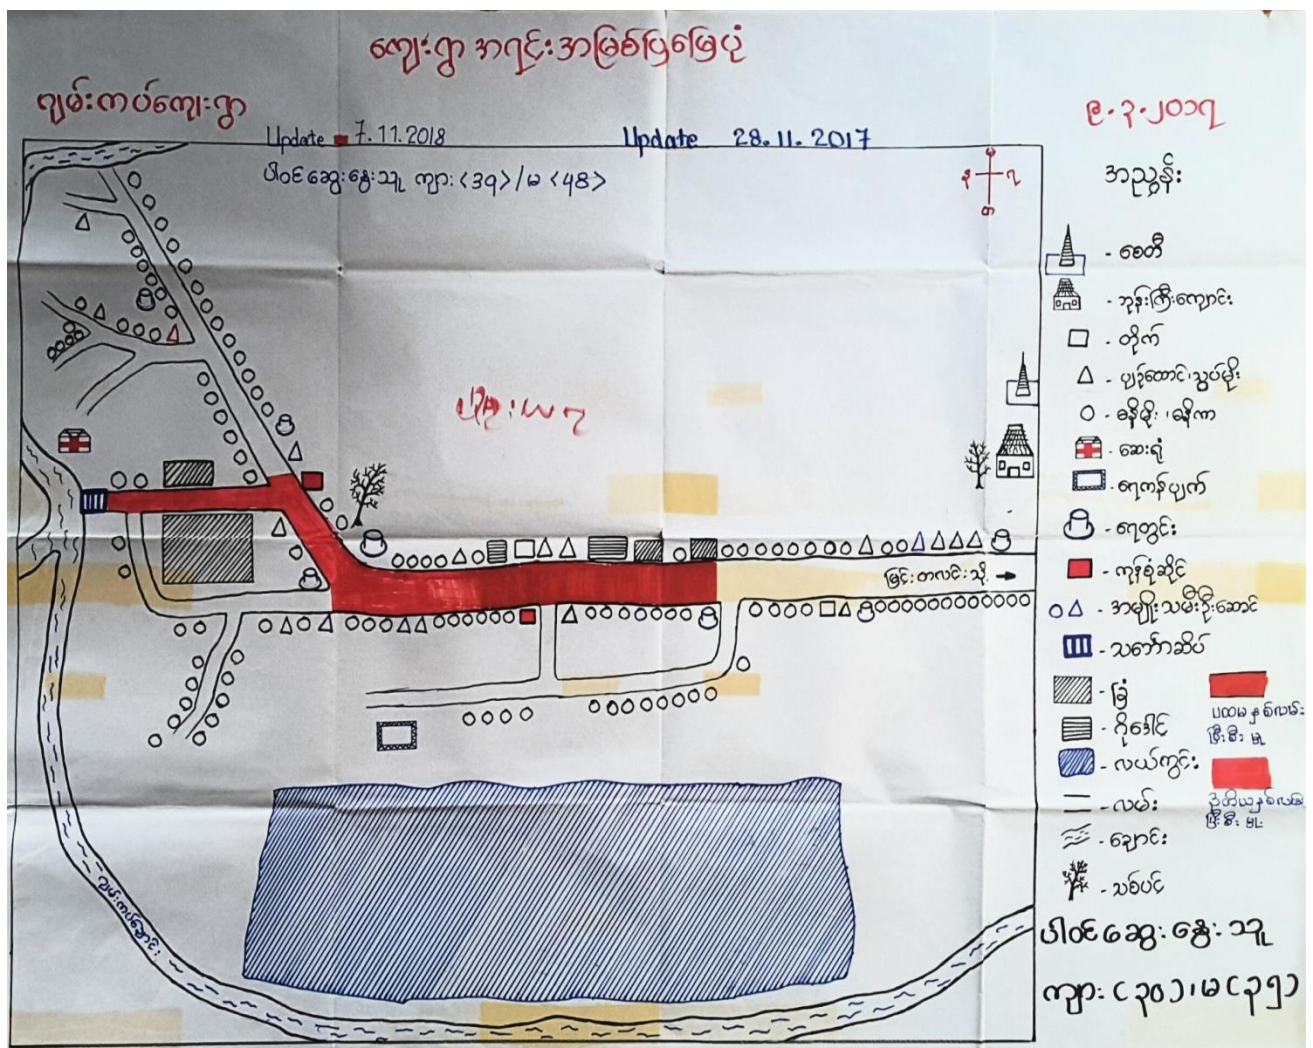 ကျေးရွာ အရင်းအမြစ်ပြမြေပုံ
ဂျမ်းကပ်ကျေးရွာ
၉.၃.၂၀၁၇
Update 7.11.2018
Update 28.11.2017
ပါဝင်ဆွေးနွေးသူ ကျား <39> / မ <48>
အညွှန်း
- စေတီ
- ဘုန်းကြီးကျောင်း
- တိုက်
- ပျဉ်ထောင်၊သွပ်မိုး
- ဓနိမိုး၊ဓနိကာ
- ဆေးရုံ
- ရေကန်ပျက်
- ရေတွင်း
- ကုန်စုံဆိုင်
- အမျိုးသမီးဦးဆောင်
- သင်္ဘောဆိပ်
- ခြံ
- ဂိုဒေါင်
- လယ်ကွင်း
- လမ်း
- ချောင်း
- သစ်ပင်
ပထမနှစ်လမ်း
ပြီးစီးမှု
ဒုတိယနှစ်လမ်း
ပြီးစီးမှု
မြင်းကလင်းသို့
ပါဝင်ဆွေးနွေးသူ
ကျား (၃၀)၊ မ (၃၅)